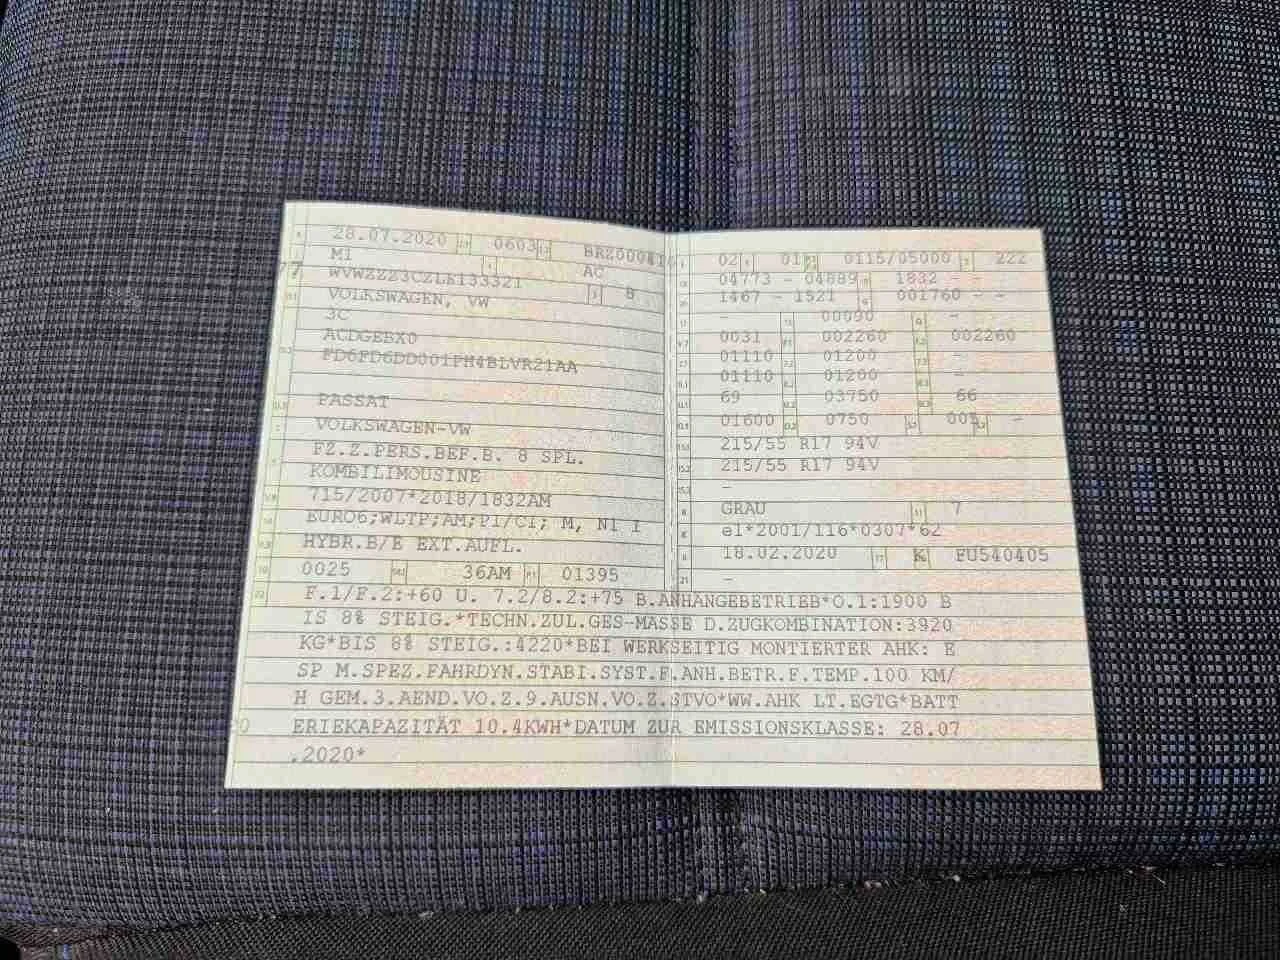 28.07.2020 0603 BRZ000416
M1 AC
WVWZZZ3CZLE133321 8
VOLKSWAGEN, VW
3C
ACDGEBX0
FD6FD6DD001PH4BLVR21AA
PASSAT
VOLKSWAGEN-VW
FZ.Z.PERS.BEF.B. 8 SPL.
KOMBILIMOUSINE
715/2007*2018/1832AM
EURO6;WLTP;AM;PI/CI; M, N1 I
HYBR.B/E EXT.AUFL.
0025 36AM 01395
02 01 0115/05000 222
04773 - 04889 1832 - -
1467 - 1521 001760 - -
- 00090 -
0031 002260 002260
01110 01200 -
01110 01200 -
69 03750 66
01600 0750 005 -
215/55 R17 94V
215/55 R17 94V
-
GRAU 7
e1*2001/116*0307*62
18.02.2020 K FU540405
-
F.1/F.2:+60 U. 7.2/8.2:+75 B.ANHANGEBETRIEB*O.1:1900 B
IS 8% STEIG.*TECHN.ZUL.GES-MASSE D.ZUGKOMBINATION:3920
KG*BIS 8% STEIG.:4220*BEI WERKSEITIG MONTIERTER AHK: E
SP M.SPEZ.FAHRDYN.STABI.SYST.F.ANH.BETR.F.TEMP.100 KM/
H GEM.3.AEND.VO.Z.9.AUSN.VO.Z.STVO*WW.AHK LT.EGTG*BATT
ERIEKAPAZITÄT 10.4KWH*DATUM ZUR EMISSIONSKLASSE: 28.07
.2020*